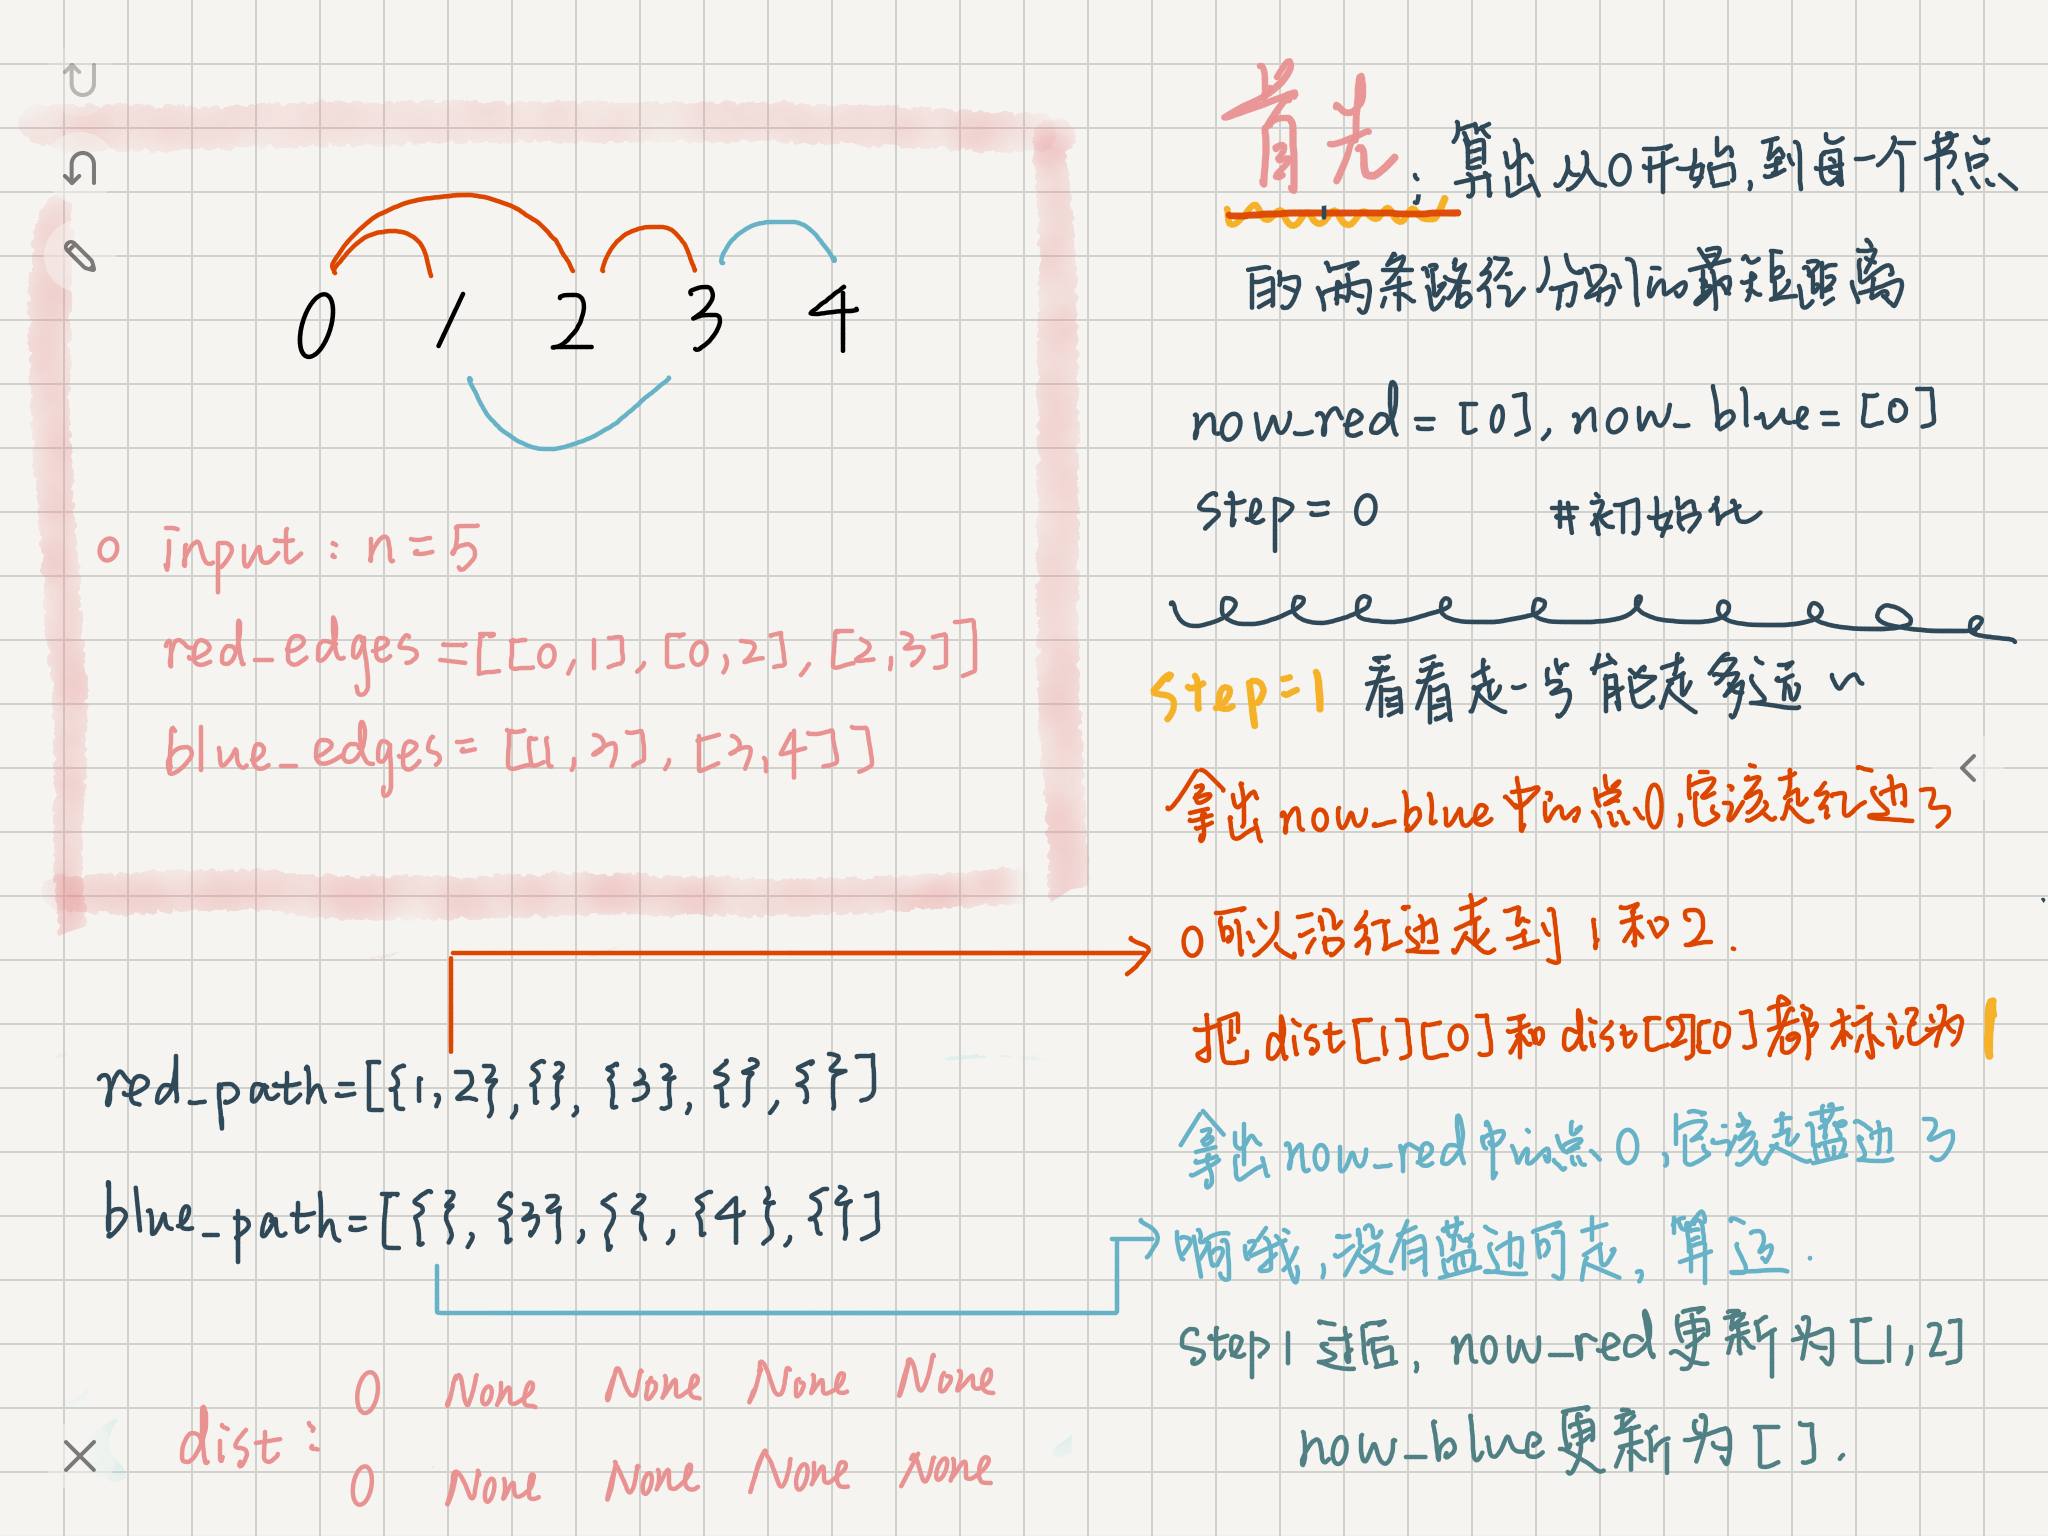 0 1 2 3 4
o input : n = 5
red_edges = [[0,1], [0,2], [2,3]]
blue_edges = [[1,3], [3,4]]
red_path=[{1,2},{}, {3}, {}, {}]
blue_path=[{}, {3}, {}, {4}, {}]
dist :
0 None None None None
0 None None None None
首先：算出从0开始,到每一个节点
的两条路径分别的最短距离
now_red = [0], now_blue = [0]
step = 0 #初始化
step=1 看看走一步能走多远~
拿出now_blue中的点0,它该走红边了
0可以沿红边走到1和2.
把dist[1][0]和dist[2][0]都标记为1
拿出now_red中的点0,它该走蓝边了
啊哦,没有蓝边可走,算了.
step1过后, now_red更新为[1,2]
now_blue更新为[].